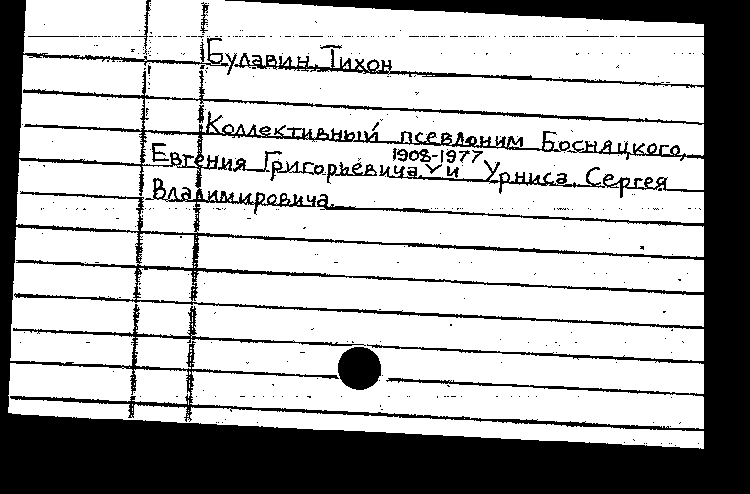 Булавин, Тихон
Коллективный псевдоним Босняцкого,
1908-1977
Евгения Григорьевича и Урниса, Сергея
Владимировича